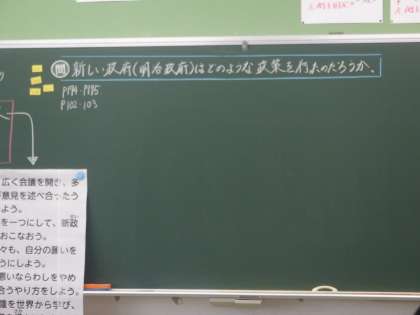 問 新しい政府(明治政府)はどのような政策を行ったのだろうか。
P194-P195
P102-103
広く会議を開き、多
意見を述べ合ったう
よう。
を一つにして、新政
おこなおう。
々も、自分の願いを
うにしよう。
悪いならわしをやめ
合うやり方をしよう。
識を世界から学び、